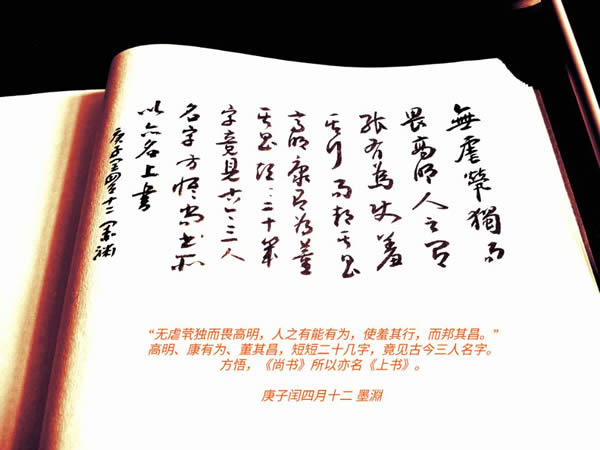 無虐煢獨而
畏高明人之有
能有為使羞
其行而邦其昌
高明康有為董
其昌短〻二十幾
字竟見古今三人
名字方悟尚書所
以亦名上書
庚子閏四月十二 墨淵
“无虐茕独而畏高明，人之有能有为，使羞其行，而邦其昌。”
高明、康有为、董其昌，短短二十几字，竟见古今三人名字。
方悟，《尚书》所以亦名《上书》。
庚子闰四月十二 墨淵